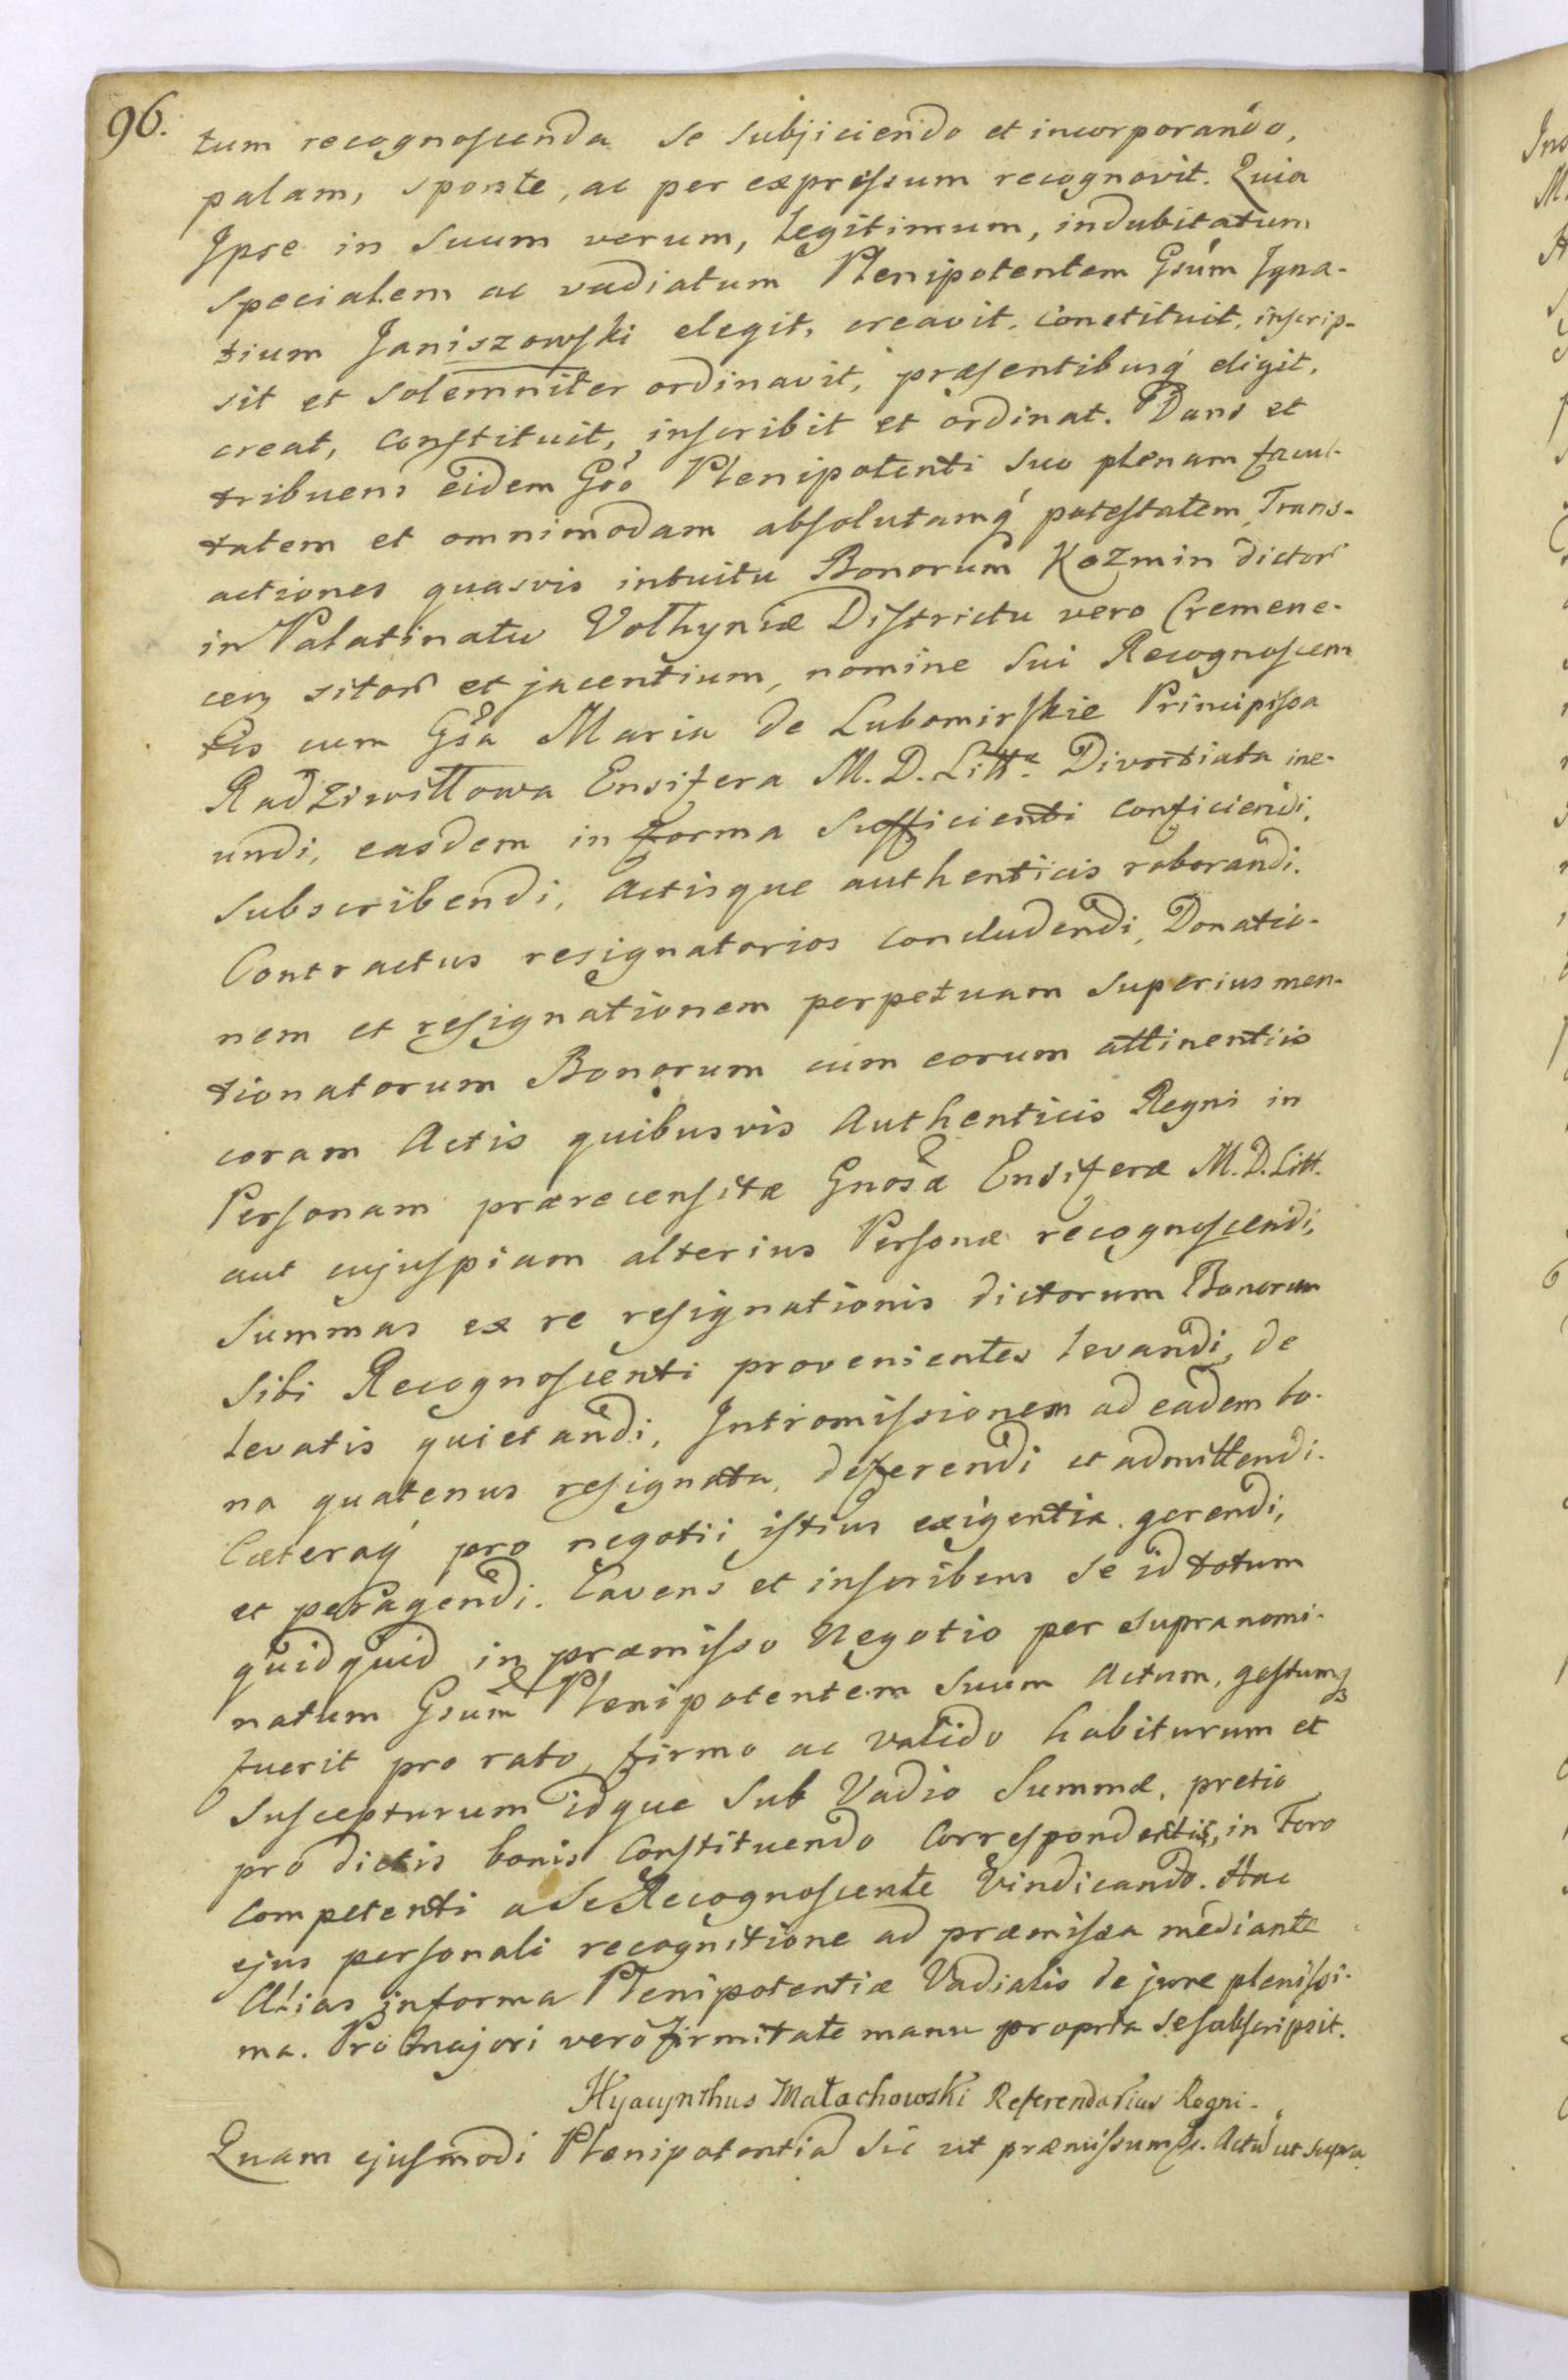 96.
tum recognoscenda se subjiciendo et incorporando,
palam, sponte, ac per expressum recognovit. Quia
Ipse in Suum verum, legitimum, indubitatum
specialem ac vadiatum Plenipotentem Gsum Igna-
tium Janiszowski elegit, creavit, constituit, inscrip-
sit et solemniter ordinavit, præsentibusq́ eligit,
creat, constituit, inscribit et ordinat. Dans et
tribuens eidem Gso Plenipotenti suo plenam facul-
tatem et omnimodam absolutamq́ potestatem, Trans-
actiones quasvis intuitu Bonorum Kozmin dictor
in Palatinatu Volhyniæ Districtu vero Cremene-
cen sitor et jacentium, nomine sui Recognoscen
tis cum Gsa Maria de Lubomirskie Principissa
Radziwiłłowa Ensifera M. D. Litt. Divortiata ine-
undi, easdem in forma sufficienti conficiendi,
subscribendi, Actisque authenticis roborandi.
Contractus resignatorios concludendi, Donatio-
nem et resignationem perpetuam superius men-
tionatorum Bonorum cum eorum attinentiis
coram Actis quibusvis Authenticis Regni in
Personam prærecensitæ Gnosæ Ensiferæ M. D. Litt.
aut cujuspiam alterius Personæ recognoscendi,
Summas ex re resignationis dictorum Bonorum
sibi Recognoscenti provenientes levandi, de
levatis quietandi, Intromissionem ad eadem bo-
na quatenus resignata, deferendi et admittendi.
Cæteraq́ pro negotii istius exigentia gerendi,
et peragendi. Cavens et inscribens se id totum
quidquid in præmisso Negotio per supranomi-
natum Gsum Plenipotentem suum Actum, gestumq
fuerit pro rato, firmo ac valido habiturum et
suscepturum idque sub Vadio Summæ, pretio
pro dictis bonis constituendo correspondentis, in Foro
competenti a se Recognoscente vindicando. Hac
ejus personali recognitione ad præmissa mediante
Alias in forma Plenipotentiæ Vadialis de jure plenissi-
ma. Pro majori vero firmitate manu propria se subscripsit.
Hyacynthus Małachowski Referendarius Regni.
Quam ejusmodi Plenipotentia sic ut præmissum &c. Actu ut supra